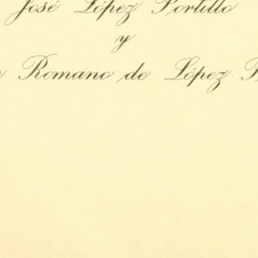 José López Portillo
y
Romano de López